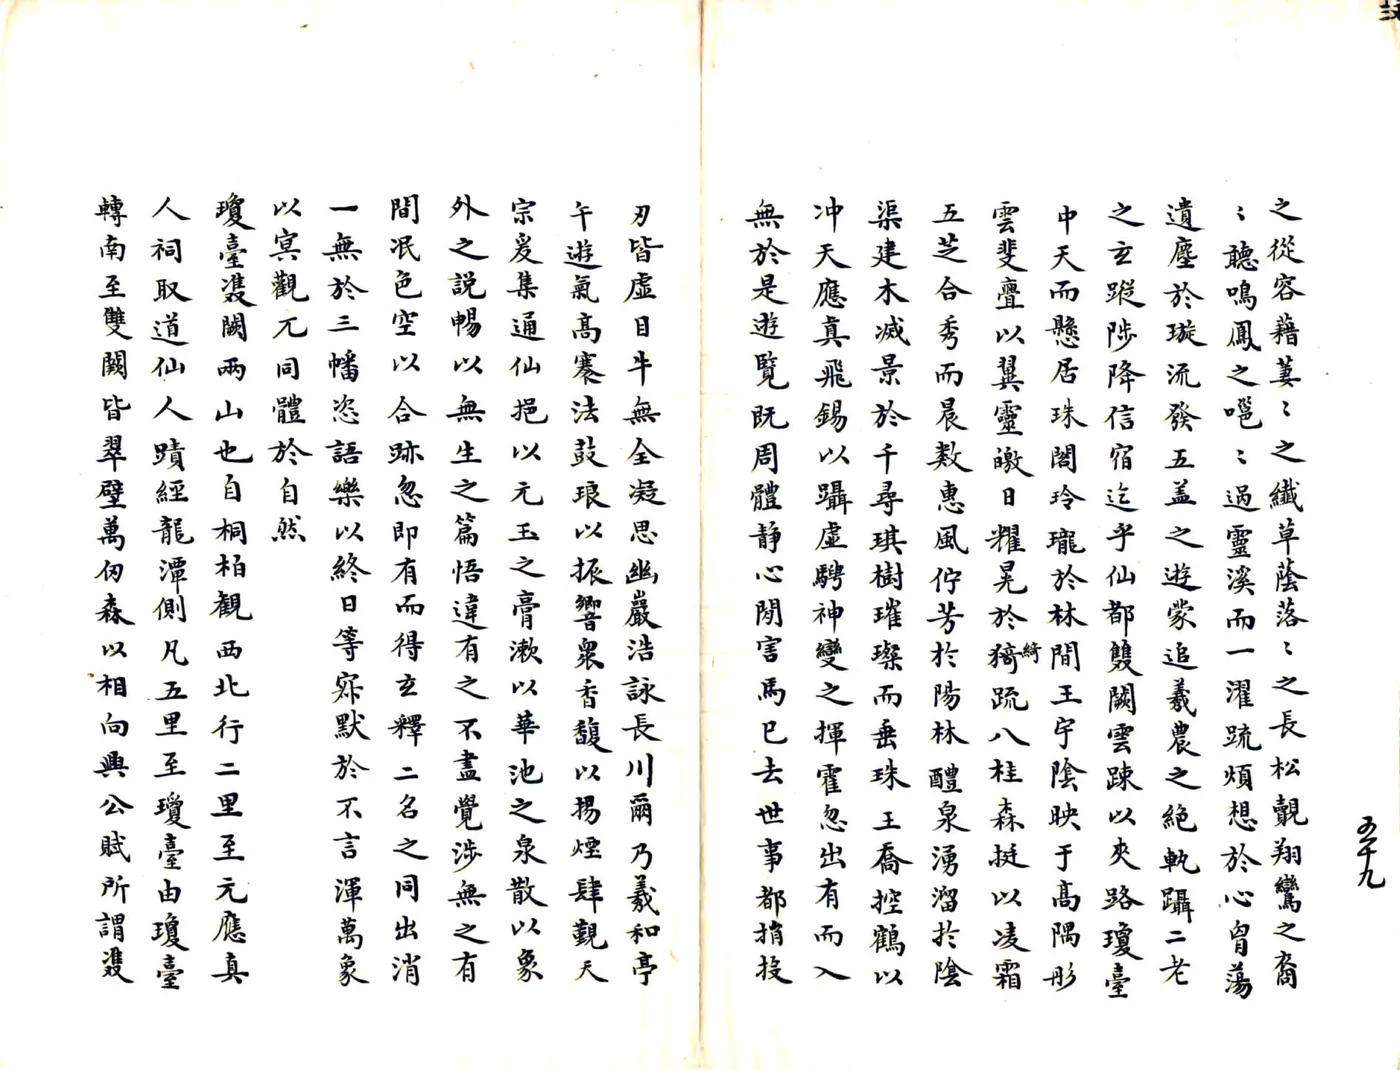 之從容藉萋〻之纖草蔭落〻之長松覿翔鸞之裔
〻聽鳴鳳之嗈〻過靈溪而一濯疏煩想於心胷蕩
遺塵於璇流發五盖之遊蒙追羲農之絕軌躡二老
之玄蹤陟降信宿迄乎仙都雙闕雲竦以夾路瓊臺
中天而懸居珠閣玲瓏於林間王宇陰映于高隅彤
雲斐亹以翼靈皦日耀晃於猗疏八桂森挺以凌霜
綺
五芝合秀而晨敷惠風佇芳於陽林醴泉湧溜於陰
渠建木滅景於千尋琪樹璀璨而垂珠王喬控鶴以
冲天應真飛錫以躡虛騁神變之揮霍忽出有而入
無於是遊覽既周體靜心閒害馬已去世事都捎投
五十九
刃皆虛目牛無全凝思幽巖浩詠長川爾乃羲和亭
午遊氣高褰法鼓琅以振響衆香馥以揚煙肆覲天
宗爰集通仙挹以元玉之膏漱以華池之泉散以象
外之説暢以無生之篇悟違有之不盡覺涉無之有
間泯色空以合跡忽即有而得玄釋二名之同出消
一無於三幡恣語樂以終日等寂默於不言渾萬象
以冥觀兀同體於自然
瓊臺雙闕兩山也自桐柏觀西北行二里至元應真
人祠取道仙人蹟經龍潭側凡五里至瓊臺由瓊臺
轉南至雙闕皆翠壁萬仞森以相向興公賦所謂雙